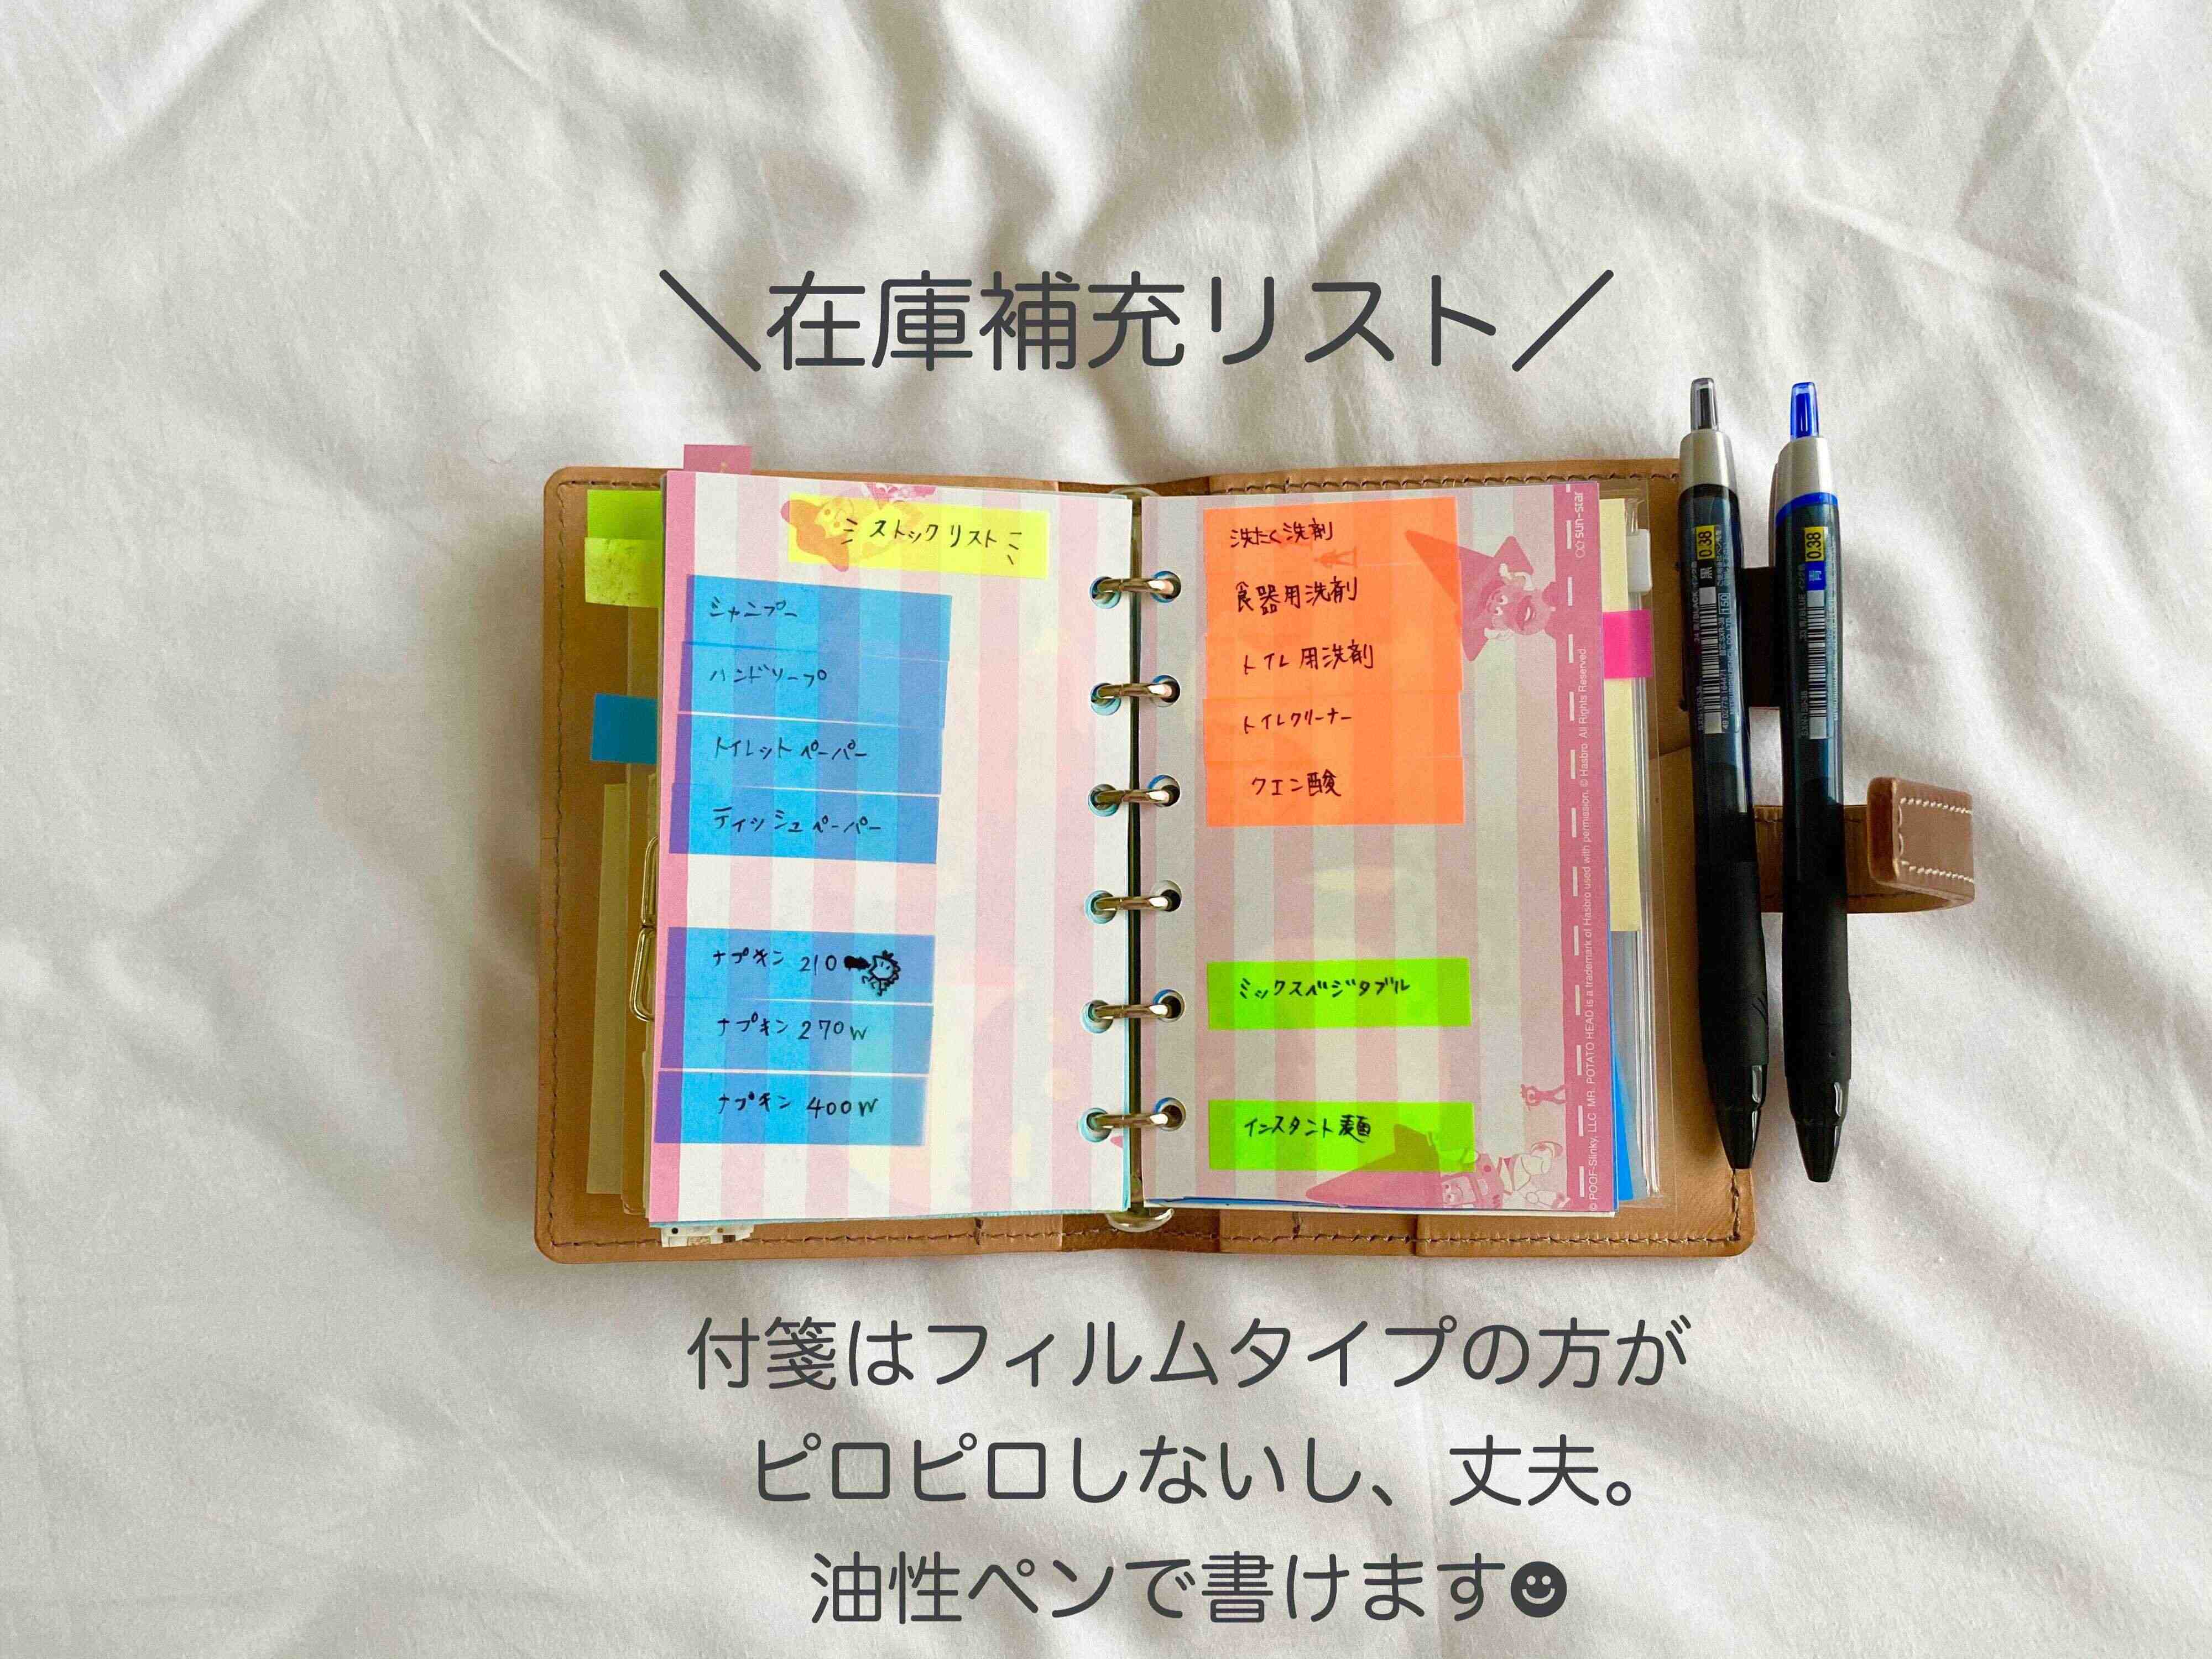 ＼在庫補充リスト／
ストックリスト
シャンプー
ハンドソープ
トイレットペーパー
ティッシュペーパー
ナプキン 210
ナプキン 270W
ナプキン 400W
洗たく洗剤
食器用洗剤
トイレ用洗剤
トイレクリーナー
クエン酸
ミックスベジタブル
インスタント麺
sun-star
© POOF-Slinky, LLC MR. POTATO HEAD is a trademark of Hasbro used with permission. © Hasbro All Rights Reserved.
0.38
黒
0.38
青
付箋はフィルムタイプの方が
ピロピロしないし、丈夫。
油性ペンで書けます☻